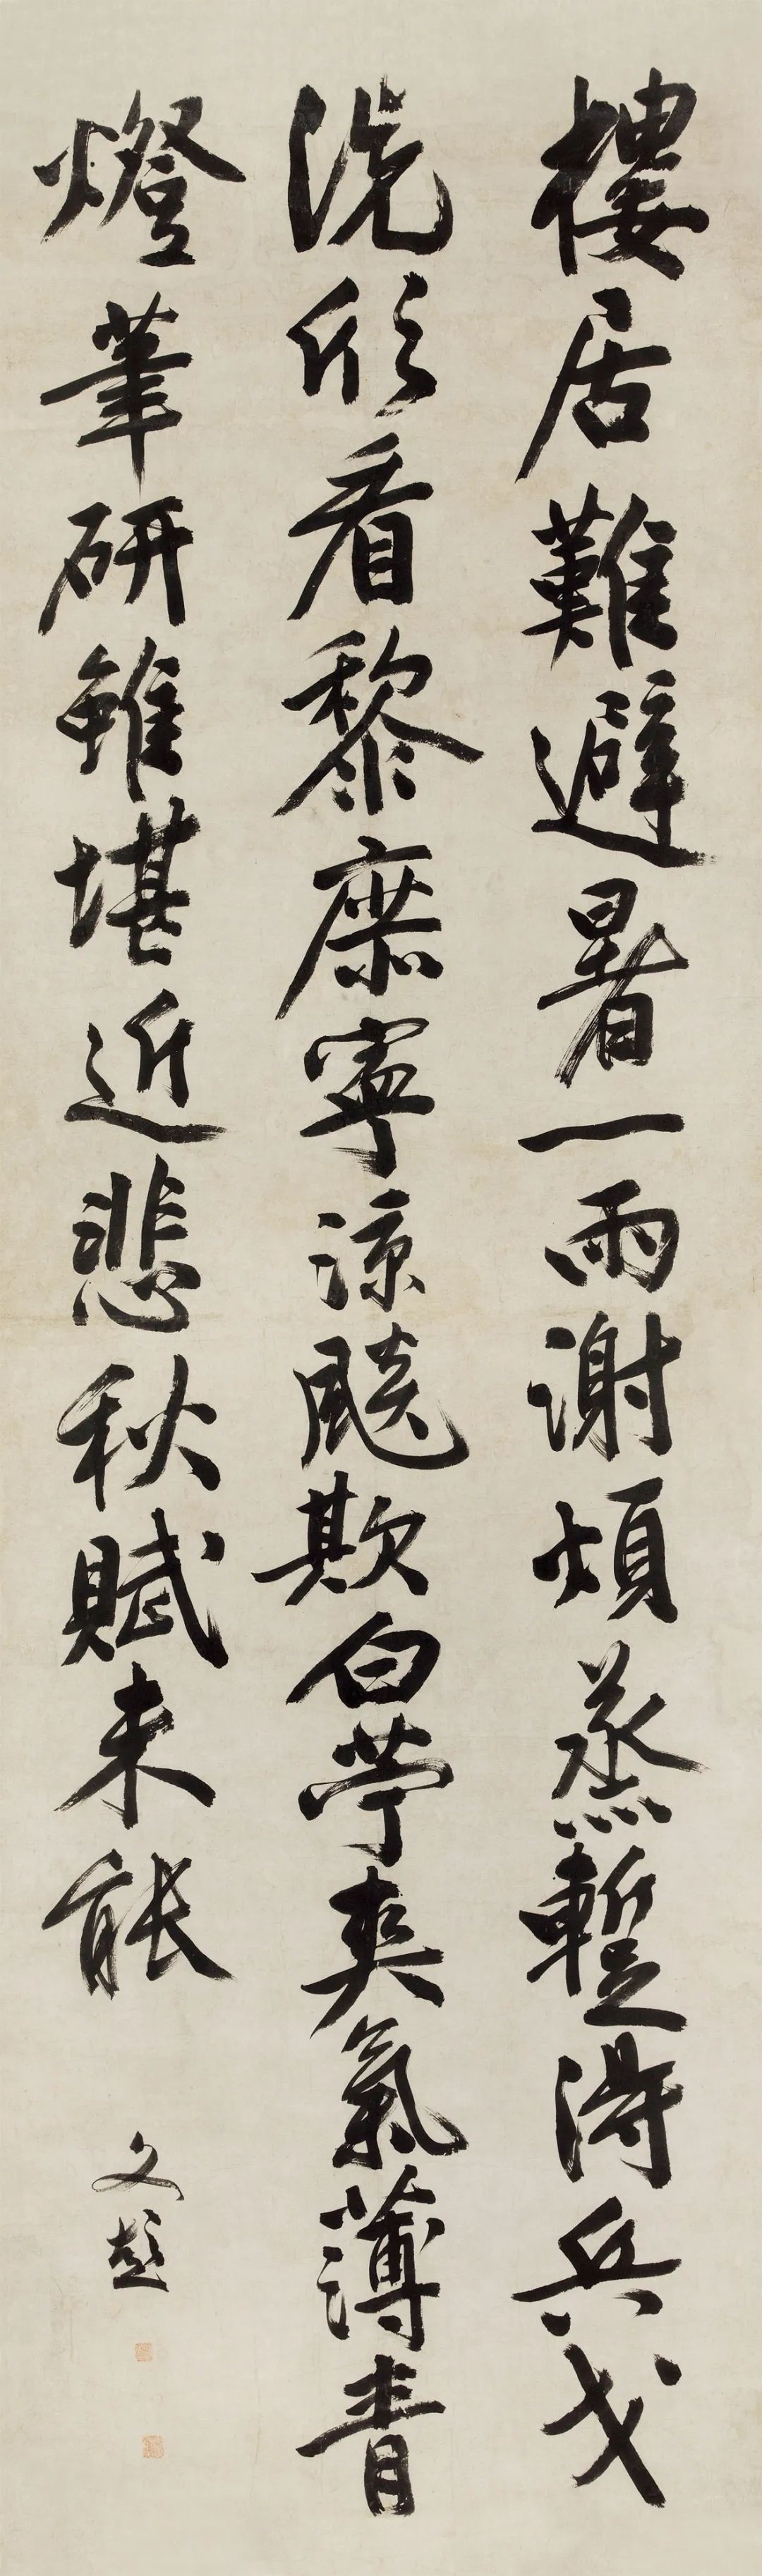 樓居難避暑一雨謝煩蒸暫得兵戈
洗欣看黎庶寧涼颷欺白苧爽氣薄青
燈筆研雖堪近悲秋賦未能
文彭